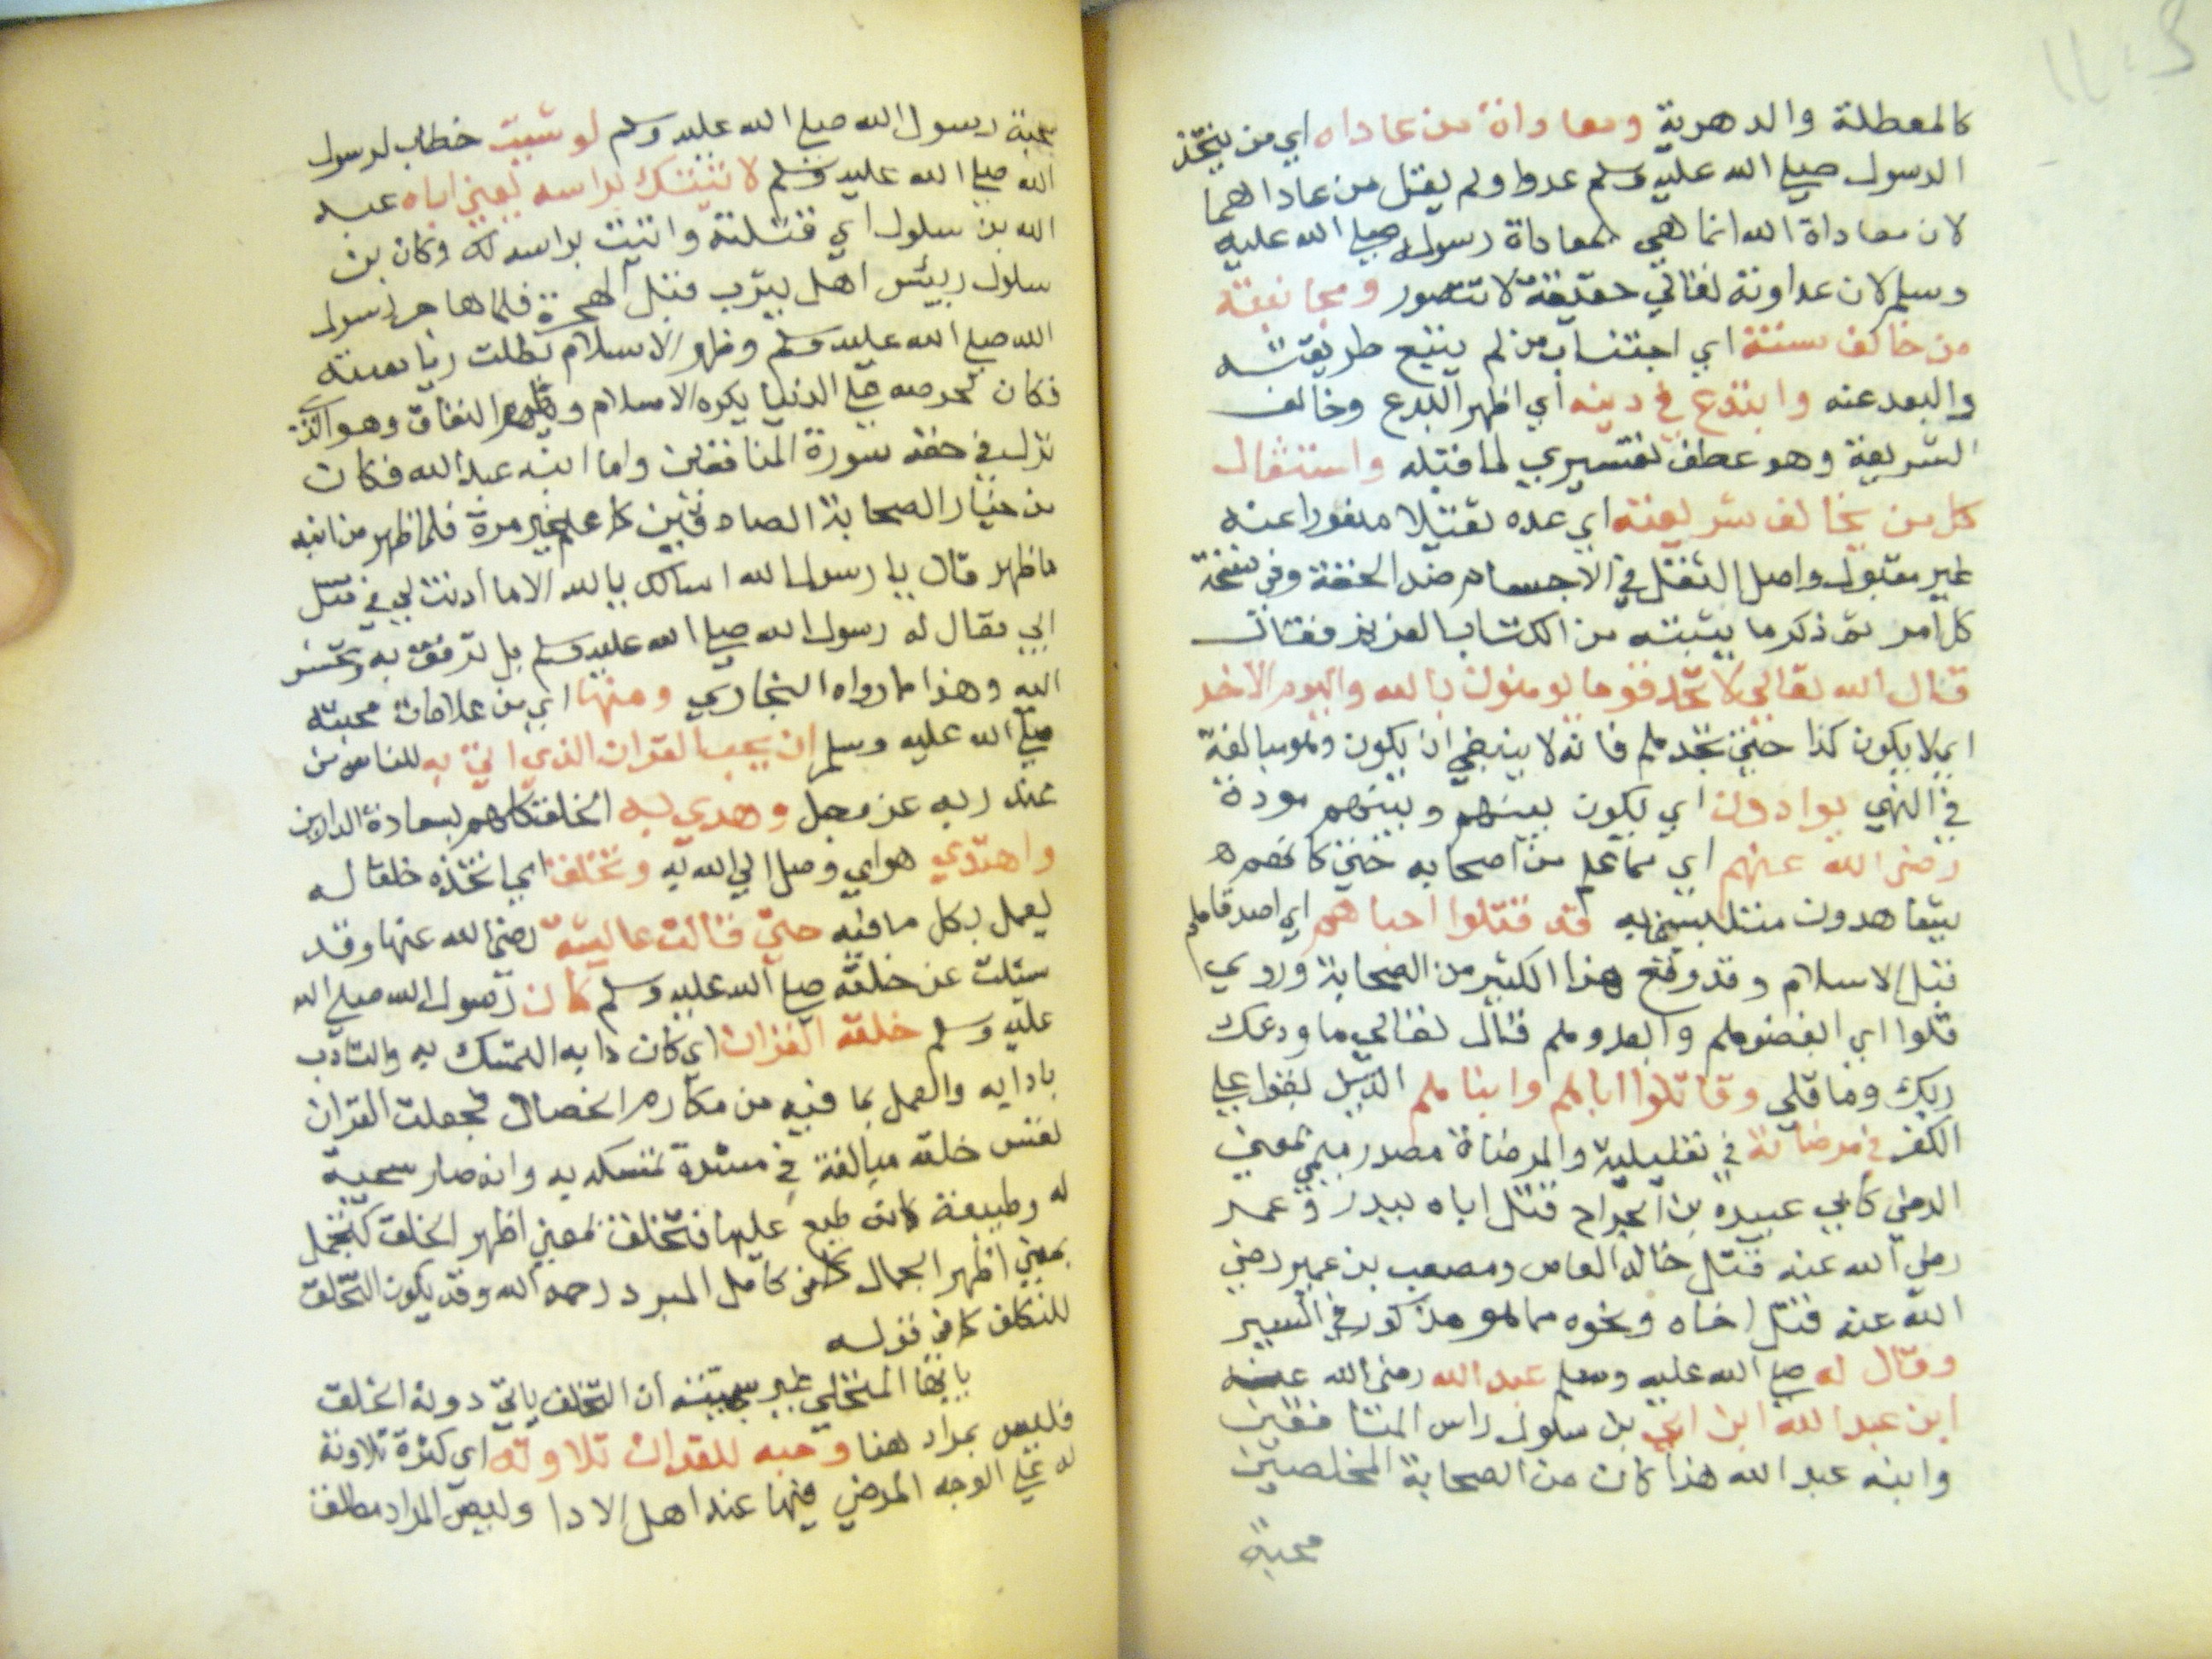 كالمعطلة والدهرية ومعاداة من عاداه اي من يتخذ
الرسول صلى الله عليه وسلم عدوا ولم يقل من عاداهما
لان معاداة الله انما هي لمعاداة رسوله صلى الله عليه
وسلم لان عداوته تعالى حقيقة لا تتصور ومجانبة
من خالف سنته اي اجتناب من لم يتبع طريقته
والبعد عنه وابتدع في دينه اي اظهر البدع وخالف
الشريعة وهو عطف تفسيري لما قبله واستثقال
كل من يخالف شريعته اي عده ثقيلا منفورا عنه
غير مقبول واصل الثقل في الاجسام ضد الخفة وفي نسخة
كل امر ثم ذكر ما يثبته من الكتاب العزيز فقال
قال الله تعالى لا تجد قوما يومنون بالله واليوم الاخر
اي لا يكون كذا حتى تجدهم فانه لا ينبغي ان يكون وهو مبالغة
في النهي يوادون اي يكون بينهم وبينهم مودة
رضى الله عنهم اي من اصحابه حتى كانهم
يشاهدون قد قتلوا احباهم اي اصدقاهم
قبل الاسلام وقد وقع هذا الكثير من الصحابة وروي
قلوا اي ابغضوهم وابعدوهم قال تعالى ما ودعك
ربك وما قلى وقاتلوا اباهم وابناهم الذين بقوا على
الكفر في مرضاته في تعليلية والمرضاة مصدر ميمي بمعنى
الرضى كابي عبيدة بن الجراح قتل اباه ببدر وعمر
رضى الله عنه قتل خاله العاص ومصعب بن عمير رضى
الله عنه قتل اخاه ونحوه مما هو مذكور في السير
وقال له صلى الله عليه وسلم عبد الله رضى الله عنه
ابن عبد الله ابن ابي بن سلول راس المنافقين
وابنه عبد الله هذا كان من الصحابة المخلصين
محبة
محبة رسول الله صلى الله عليه وسلم لو شيت خطاب لرسول
الله صلى الله عليه وسلم لاتيتك براسه يعني اباه عبد
الله بن سلول اي قتلته واتيت براسه لك وكان بن
سلول رييس اهل يثرب قبل الهجرة فلما هاجر رسول
الله صلى الله عليه وسلم وظهر الاسلام بطلت رياسته
فكان لحرصه على الدنيا يكره الاسلام النفاق وهو الذي
نزل في حقه سورة المنافقين واما ابنه عبد الله فكان
من خيار الصحابة الصادقين كما علم غير مرة فلما ظهر من ابيه
ما ظهر قال يا رسول الله اسالك بالله الا ما اذنت لي في قتل
ابي فقال له رسول الله صلى الله عليه وسلم بل ترفق به وتحسن
اليه وهذا ما رواه البخاري ومنها اي من علامات محبته
صلى الله عليه وسلم ان يحب القران الذي اتى به للناس من
عند ربه عز وجل وهدى به الخلق كلهم لسعادة الدارين
واهتدى هو اي وصل الى الله به وتخلق اي اتخذه خلقا له
يعمل بكل ما فيه حتى قالت عايشة رضى الله عنها وقد
سئلت عن خلقه صلى الله عليه وسلم كان رسول الله صلى الله
عليه وسلم خلقه القران اي كان دابه التمسك به والتادب
بادابه والعمل بما فيه من مكارم الخصال فجعلت القران
نفس خلقه مبالغة في شدة تمسكه به وانه صار سجية
له وطبيعة كانه طبع عليها فتخلق بمعنى اظهر الخلق كتجمل
بمعنى اظهر الجمال كما في كامل المبرد رحمه الله وقد يكون التخلق
للتكلف كما في قوله
يا ايها المتحلي غير شيمته ان التخلق ياتي دونه الخلق
فليس بمراد هنا وحبه للقران تلاوته اي كثرة تلاوته
له على الوجه المرضي فيها عند اهل الادا وليس المراد مطلق